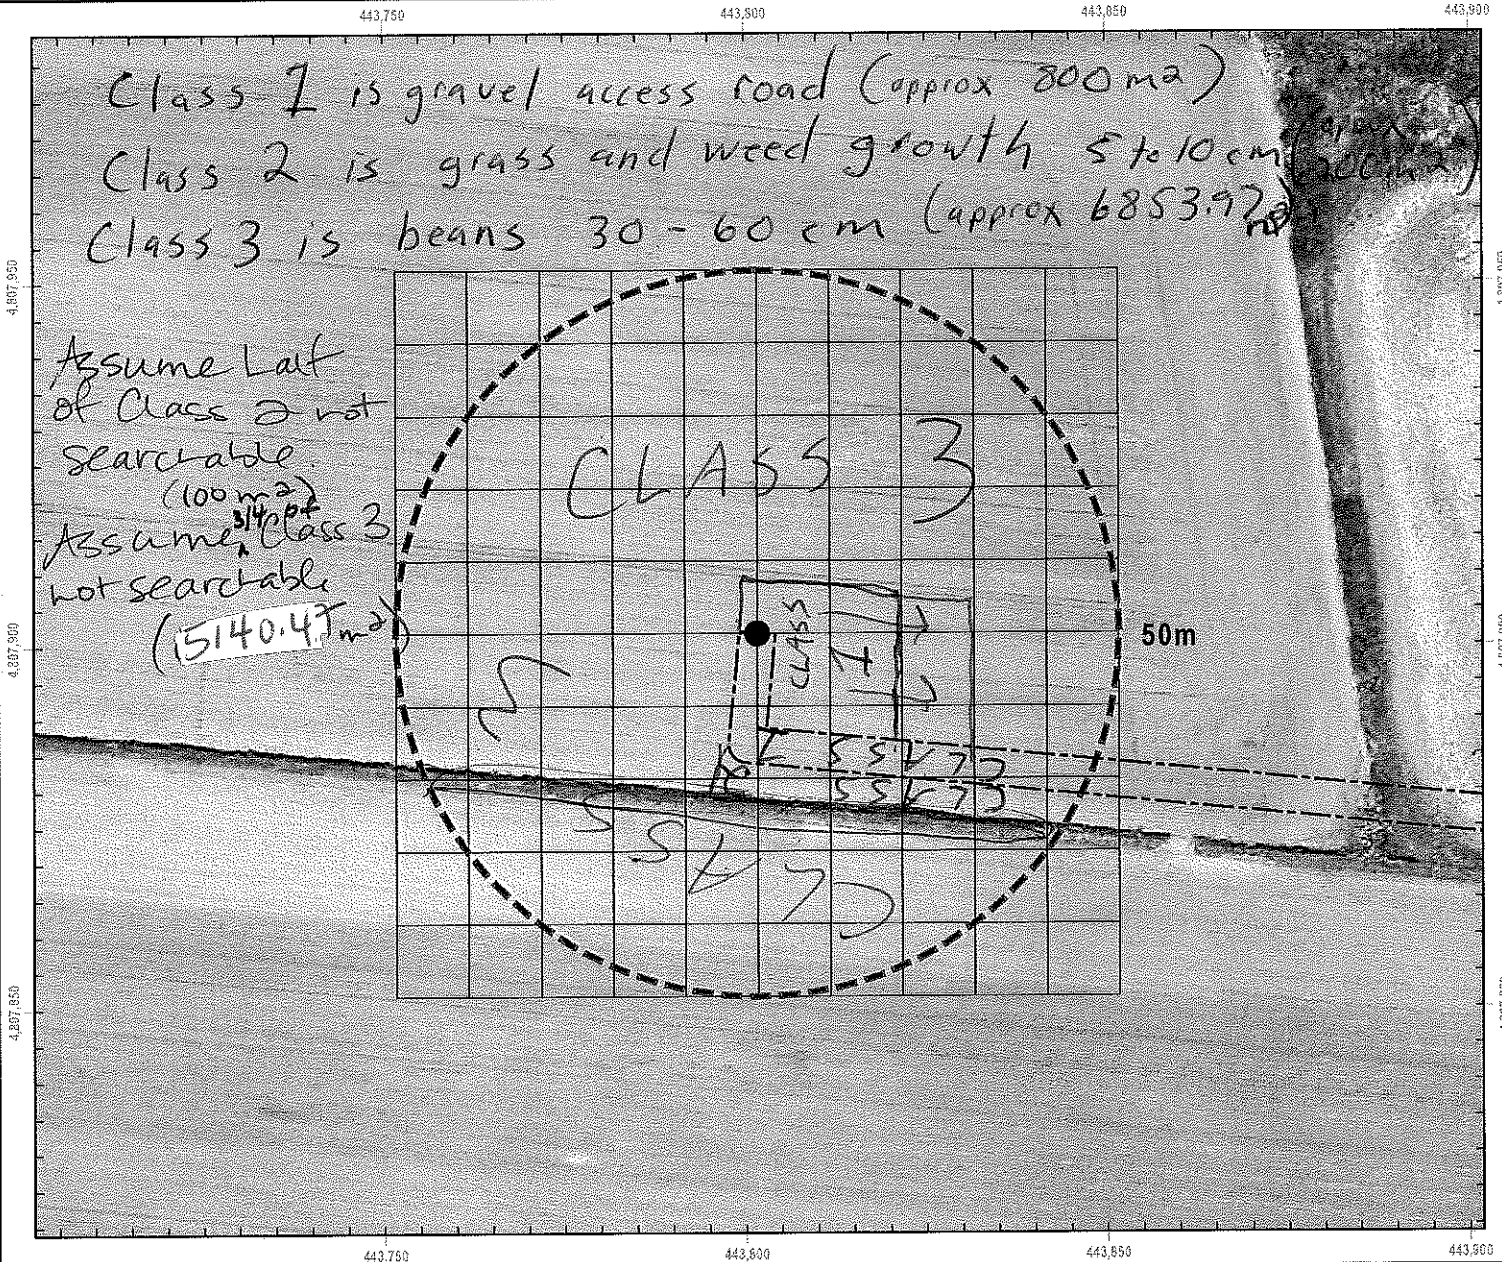 443,750 443,800 443,850 443,900
Class 1 is gravel access road (approx 800 m2)
Class 2 is grass and weed growth 5 to 10 cm (approx 200 m2)
Class 3 is beans 30 - 60 cm (approx 6853.97 m2)
4,897,950
Assume half
of Class 2 not
searchable.
(100 m2)
3/4 of
Assume ^ Class 3
not searchable
(5140.47 m2)
CLASS 3
CLASS 1
50m
4,897,900
CLASS 1
CLASS 2
CLASS 3
4,897,850
443,750 443,800 443,850 443,900